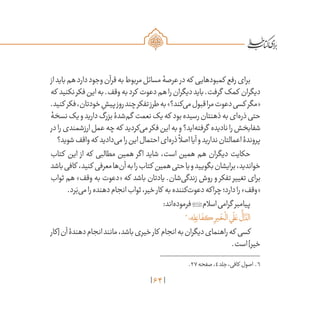 برای رفع کمبودهایی که در عرصهٔ مسائل مربوط به قرآن وجود دارد هم باید از
دیگران کمک گرفت. باید دیگران را هم دعوت کرد به وقف. به این فکر نکنید که
«مگر کسی دعوت مرا قبول می‌کند؟» به طرز تفکر چند روز پیشِ خودتان، فکر کنید.
حتی ذره‌ای به ذهنتان رسیده بود که یک نعمت گم‌شدهٔ بزرگ دارید و یک نسخهٔ
شفابخش را نادیده گرفته‌اید؟ و به این فکر می‌کردید که چه عمل ارزشمندی را در
پروندهٔ اعمالتان ندارید و آیا اصلاً ذره‌ای احتمال این را می‌دادید که واقف شوید؟
حکایت دیگران هم همین است، شاید اگر همین مطالبی که از این کتاب
خواندید، برایشان بگویید و یا حتی همین کتاب را به آن‌ها معرفی کنید، کافی باشد
برای تغییر تفکر و روش زندگی‌شان. یادتان باشد که «دعوت به وقف» هم ثواب
«وقف» را دارد؛ چراکه دعوت‌کننده به کار خیر، ثواب انجام دهنده را می‌بَرد.
پیامبر گرامی اسلام ﷺ فرموده‌اند:
الدَّالُّ عَلَى الْخَيْرِ كَفَاعِلِهِ.
کسی که راهنمای دیگران به انجام کار خیری باشد، مانند انجام دهندهٔ آن [کار
خیر] است.
٦. اصول کافی، جلد ٤، صفحه ٢٧.
|٦٣|